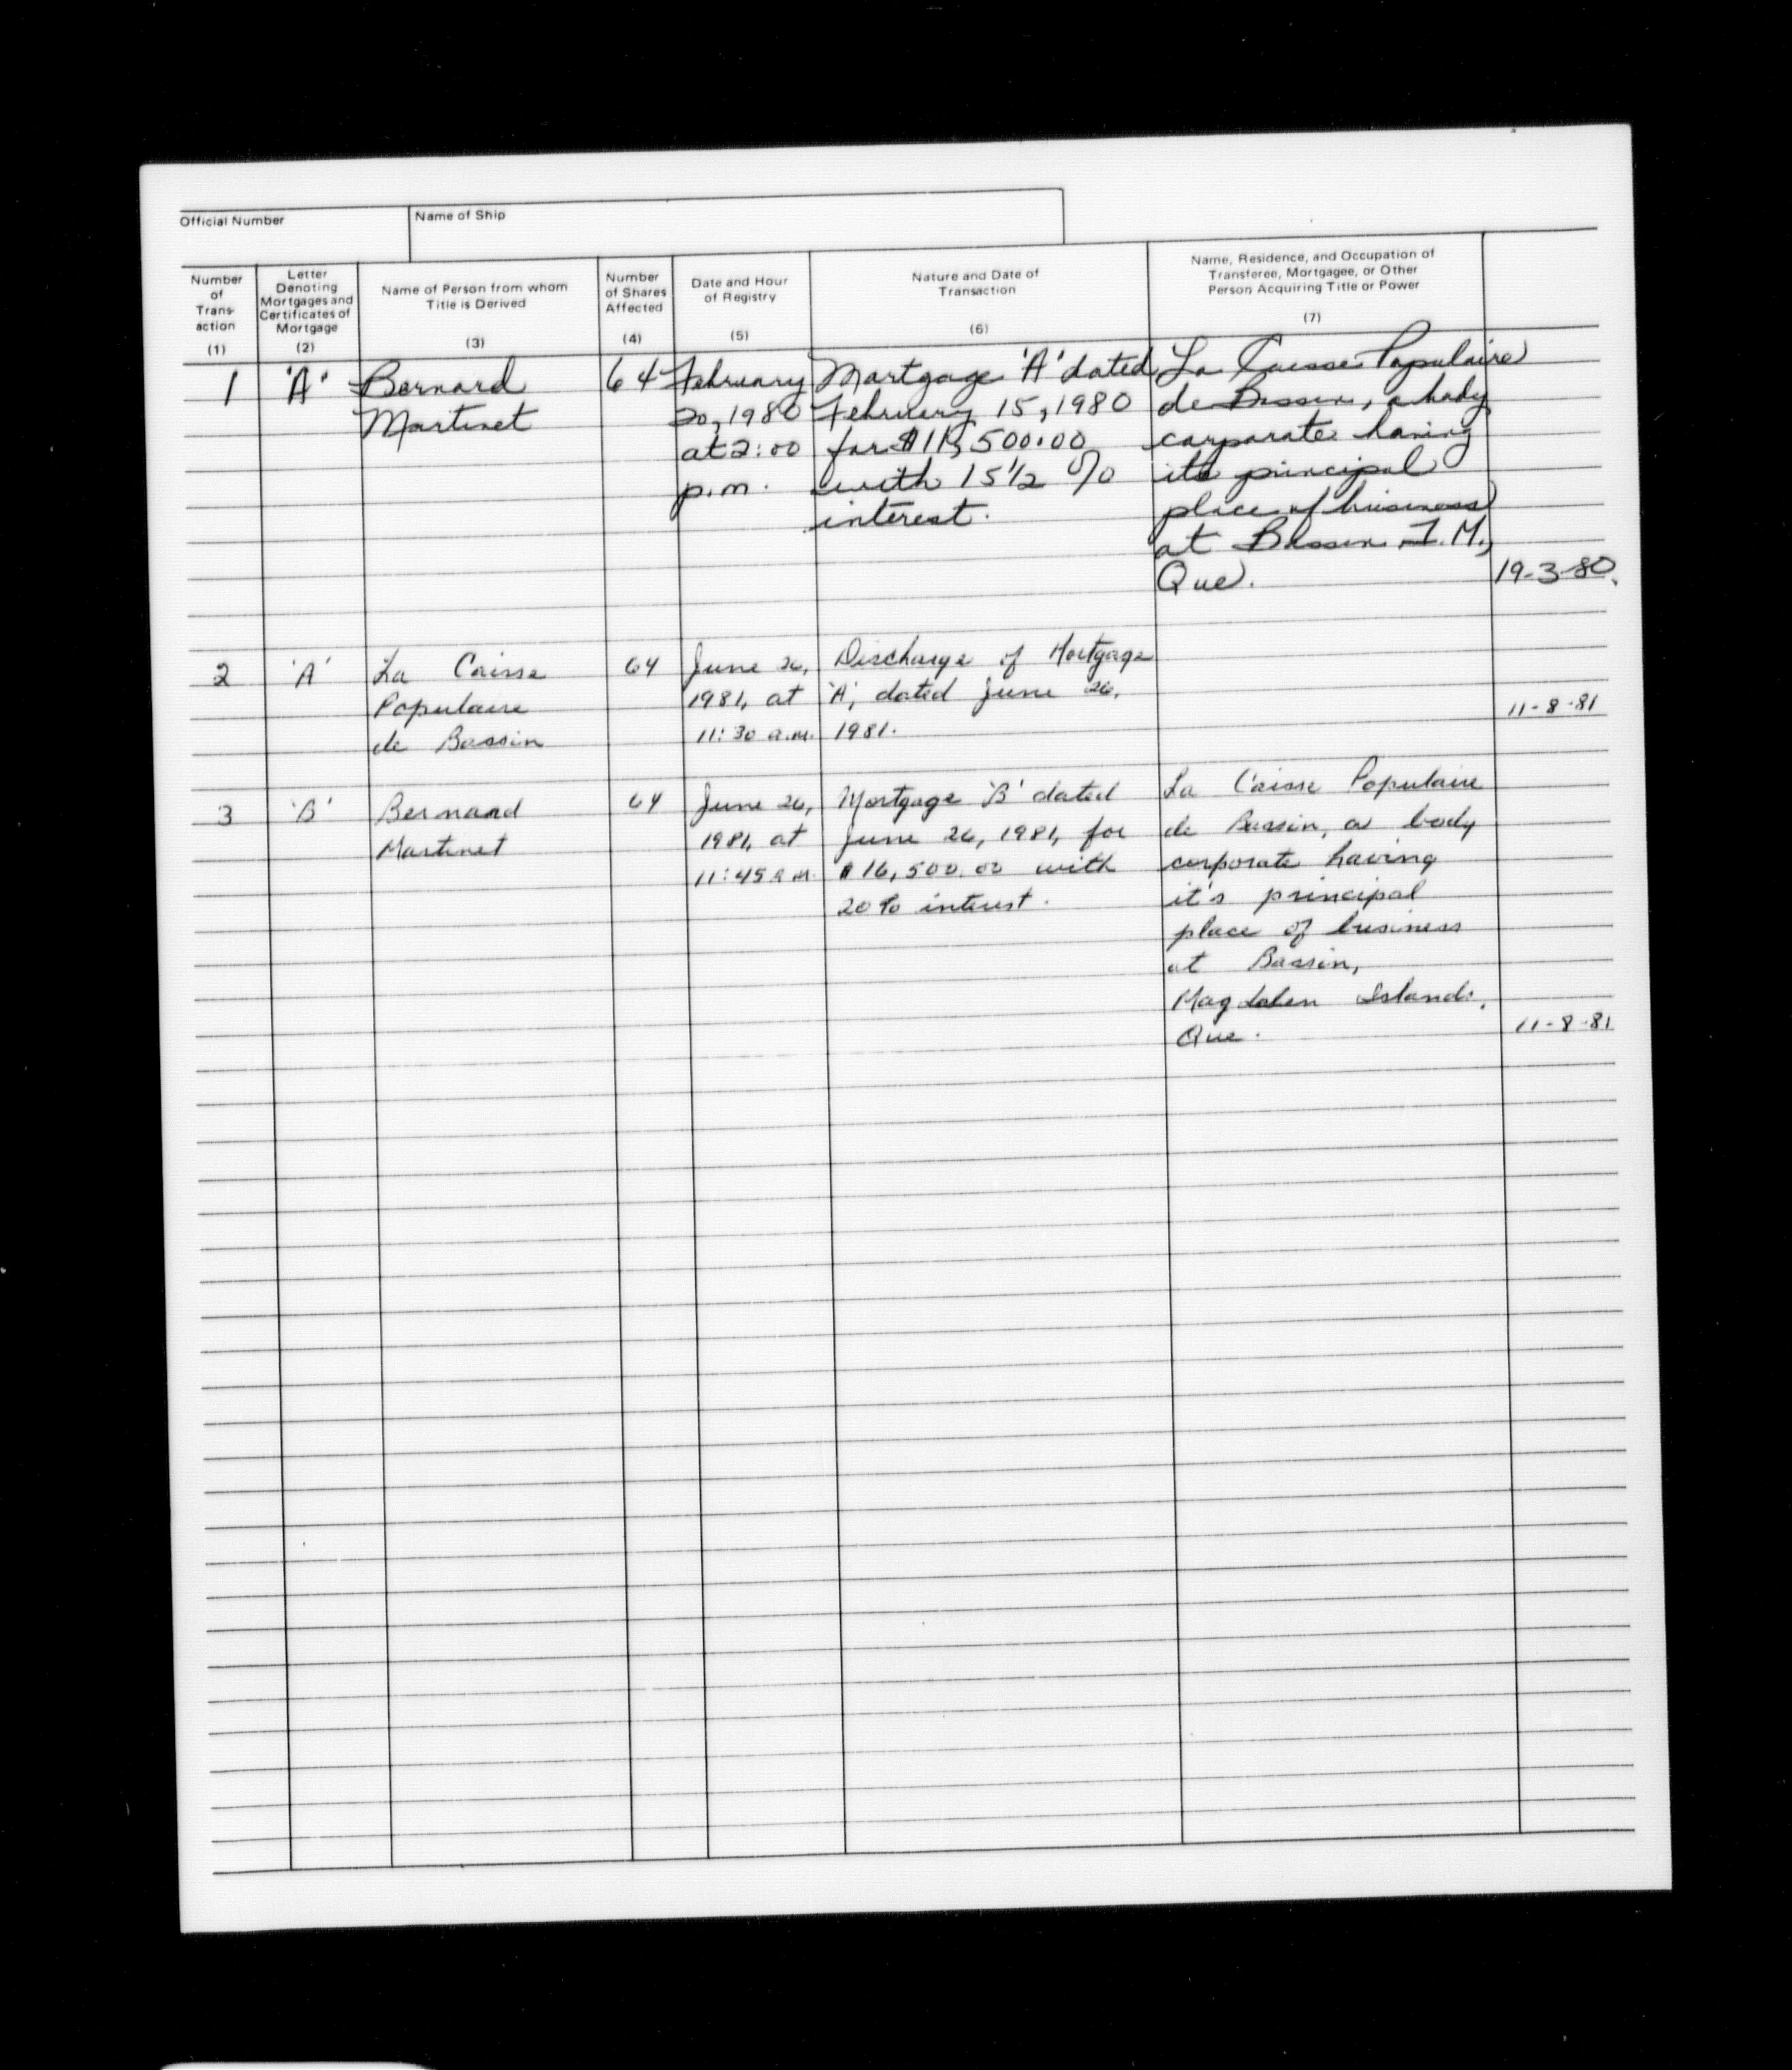 Official Number
Name of Ship
Number
of
Trans-
action
(1)
Letter
Denoting
Mortgages and
Certificates of
Mortgage
(2)
Name of Person from whom
Title is Derived
(3)
Number
of Shares
Affected
(4)
Date and Hour
of Registry
(5)
Nature and Date of
Transaction
(6)
Name, Residence, and Occupation of
Transferee, Mortgagee, or Other
Person Acquiring Title or Power
(7)
1
'A'
Bernard
Martinet
64
February
20, 1980
at 2:00
p.m.
Mortgage 'A' dated
February 15, 1980
for
with 15 1/2 %
interest.
La Caisse Populaire
de Bassin, a body
corporate having
its principal
place of business
at Bassin I.M.,
Que.
19-3-80.
2
'A'
La Caisse
Populaire
de Bassin
64
June 26,
1981, at
11:30 a.m.
Discharge of Mortgage
'A', dated June 26,
1981.
11-8-81
3
'B'
Bernard
Martinet
64
June 26,
1981, at
11:45 a.m.
Mortgage 'B' dated
June 26, 1981, for
$16,500.00 with
20% interest.
La Caisse Populaire
de Bassin, a body
corporate having
it's principal
place of business
at Bassin,
Magdalen Islands,
Que.
11-8-81